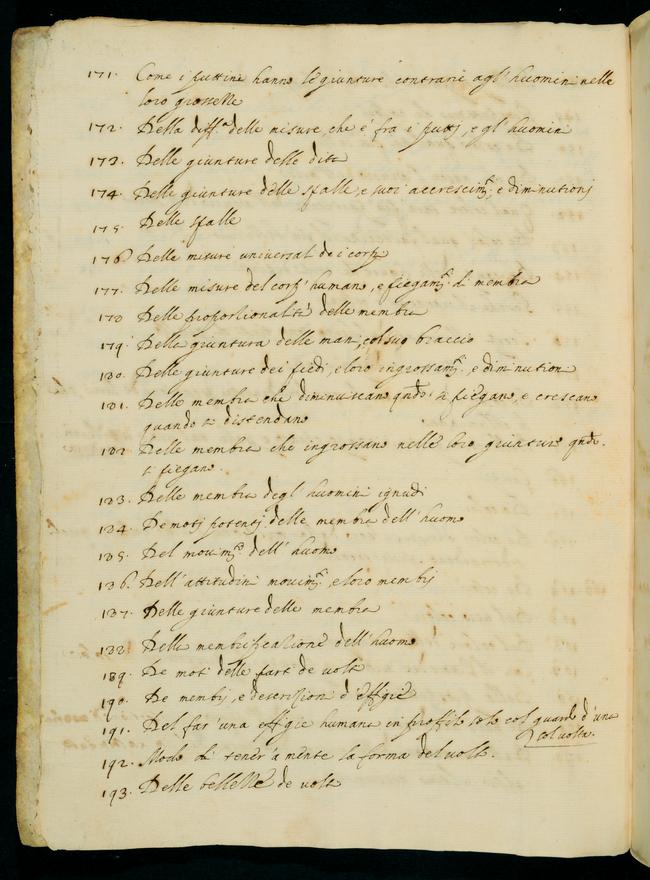 171. Come i puttini hanno le giunture contrarie agl'huomini nelle
loro grossezze
172. Della diff.ª delle misure, che è fra i putti, e gl'huomini
173. Delle giunture delle dita
174. Delle giunture delle spalle, e suoi accrescim.ti, e diminutionj
175. Delle spalle
176 Delle misure universali dei corpi
177. Delle misure del corpo humano, e piegam.ti di membra
178 Delle proportionalità delle membra
179. Della giuntura delle mani, col suo braccio
180. Delle giunture dei piedi, e loro ingrossam.ti, e diminutioni
181. Delle membra che diminuiscano qndo si piegano, e crescano
quando si distendano
182. Delle membra che ingrossano nelle loro giunture qndo.
si piegano.
183. Delle membra degl'huomini ignudi
184. De motj potentj delle membra dell'huomo
185. Del movim.to dell'huomo
186. Dell'attitudini movim.ti, e loro membrj
187. Delle giunture delle membra
188. Della membrificazione dell'huomo
189. De moti delle parti de volti
190. De membrj, e descrizioni d'effigie
191. Del far'una effigie humana in profilo solo col guardo d'una
sol volta.
192. Modo di tener'a mente la forma del volto.
193. Delle bellezze de volti